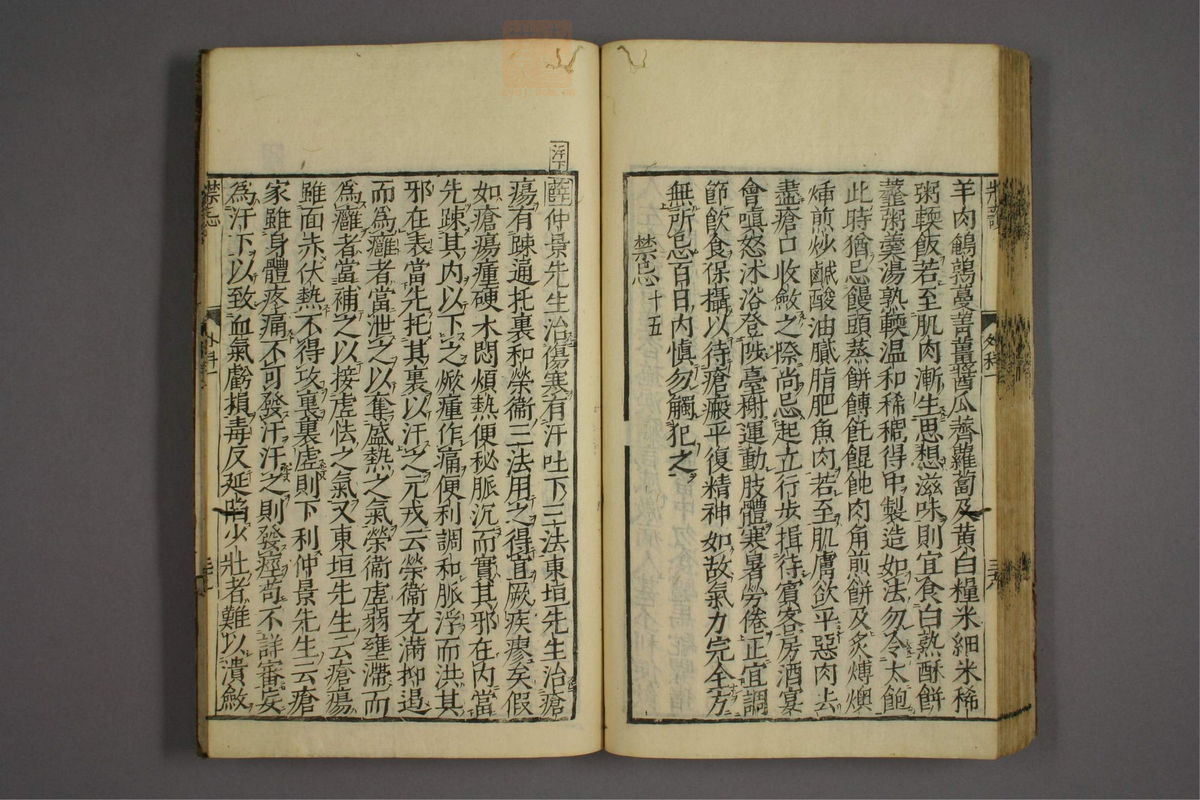 羊肉鵪鶉蔓菁薑醬瓜虀蘿蔔及黄白糧米細米稀
粥輭飯若至肌肉漸生思想滋味則宜食白熟酥餅
虀粥羹湯熟輭温和稀稠得中製造如法勿冷太飽
此時猶忌饅頭蒸餅餺飥餛飩肉角煎餅及炙煿燠
煎炒鹹酸油膩脂肥魚肉若至肌膚欲平惡肉去
盡瘡口收斂之際尚忌起立行步揖待賓客房酒宴
會嗔怒沐浴登陟臺榭運動肢體寒暑勞倦正宜調
節飲食保攝以待瘡瘢平復精神如故氣力完全方
無所忌百日内慎勿觸犯之
禁忌十五
浮下
薛仲景先生治傷寒有汗吐下三法東垣先生治瘡
瘍有踈通托裏和榮衞三法用之得宜厥疾瘳矣假
如瘡瘍瘇硬木悶煩熱便秘脈沉而實其邪在内當
先踈其内以下之㾭瘇作痛便利調和脈浮而洪其
邪在表當先托其裏以汗之元戎云榮衞充滿抑遏
而爲癰者當泄之以奪盛熱之氣榮衞虚弱壅滯而
爲癰者當補之以接虚怯之氣又東垣先生云瘡瘍
雖面赤伏熱不得攻裏裏虚則下利仲景先生云瘡
家雖身體疼痛不可發汗汗之則發痙苟不詳審妄
爲汗下以致血氣虧損毒反延陷少壯者難以潰斂
禁忌
外科一